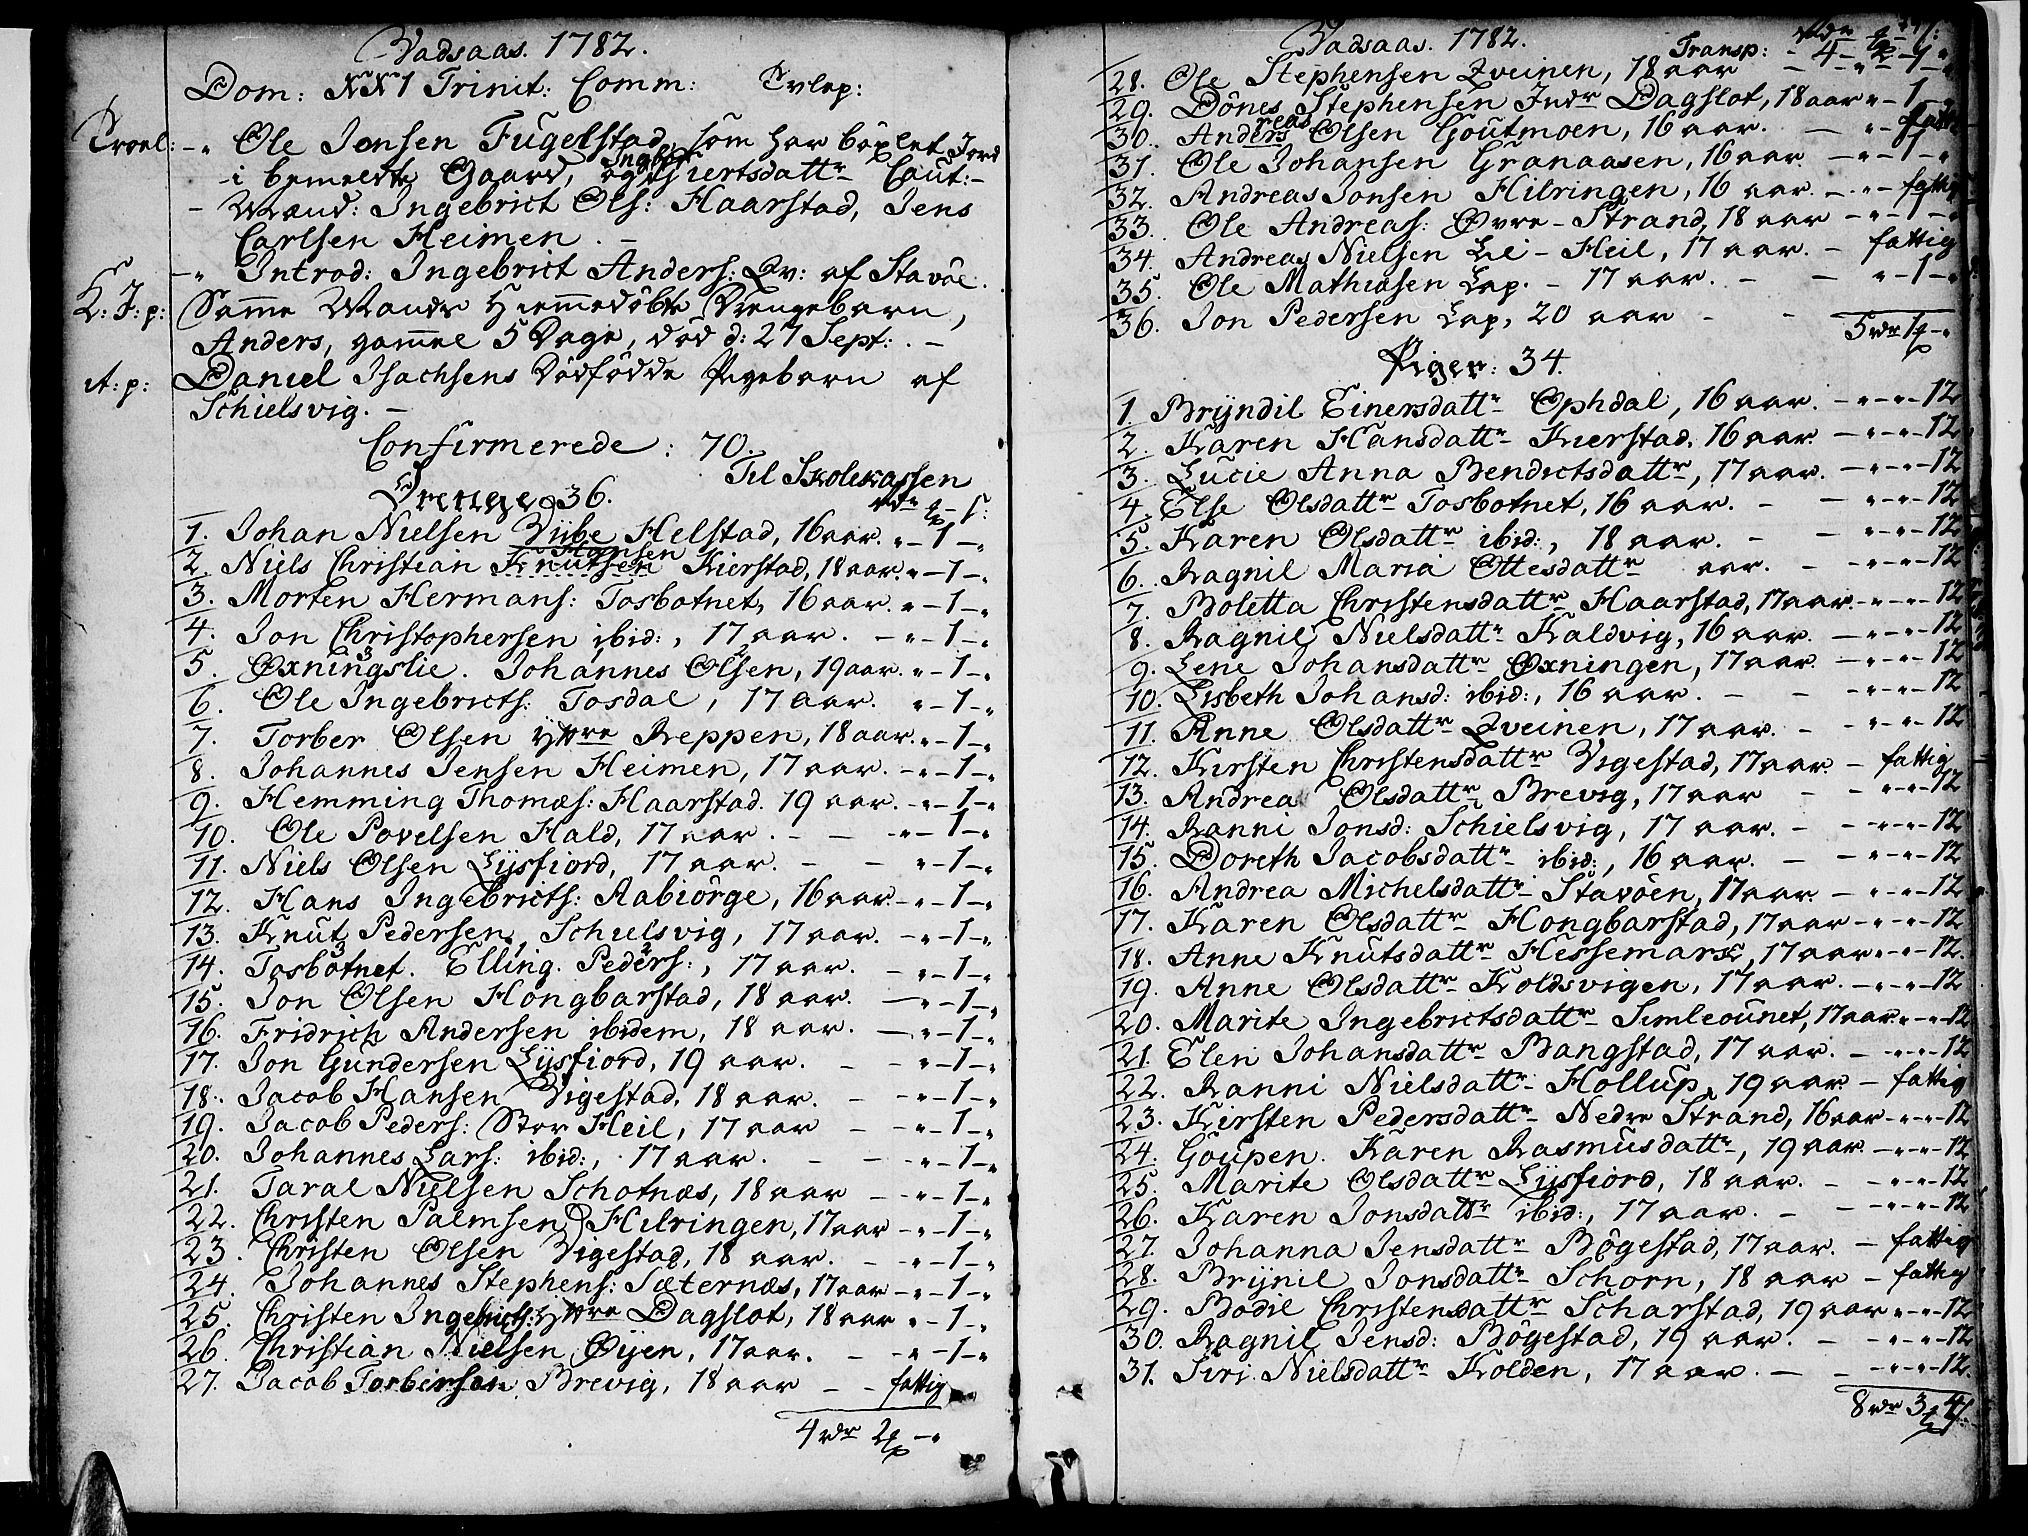 Vadsaas. 1782.
Dom: XXI Trinit: Comm:
Troel: Ole Jensen Fugelstad, som har böxlet Jord
i bemeldte Gaard, og Ingeb: Siertsdattr Caut:
Mænd: Ingebrict Ols: Haarstad, Jens
Carlsen Heimen.
Introd: Ingebrict Anders: Qv: af Stavöe.
K: J: p: Samme Mands Hiemmedöbte Drengebarn,
Anders, gammel 5 Dage, död d: 27 Sept:
A: p: Daniel Isachsens Dödfödde Pigebarn af
Schielsvig.
Confirmerede: 70.
Til Skolekassen
Drenge 36.
1. Johan Nielsen Vibe Helstad, 16 aar. - 1 -
2. Niels Christian Knutsen Hansen Kierstad, 18 aar. - 1 -
3. Morten Hermans: Tosbotnet, 16 aar. - 1 -
4. Jon Christophersen ibid:, 17 aar. - 1 -
5. Øxningslie. Johannes Olsen, 19 aar. - 1 -
6. Ole Ingebricts: Tosdal, 17 aar. - 1 -
7. Torber Olsen Yttre Reppen, 18 aar. - 1 -
8. Johannes Jensen Heimen, 17 aar. - 1 -
9. Hemming Thomæs: Haarstad. 19 aar. - 1 -
10. Ole Povelsen Hald, 17 aar. - 1 -
11. Niels Olsen Lysfiord, 17 aar. - 1 -
12. Hans Ingebricts: Aabiörge, 16 aar. - 1 -
13. Knut Pedersen, Schielsvig, 17 aar. - 1 -
14. Tosbotnet. Elling Peders:, 17 aar. - 1 -
15. Jon Olsen Hongbarstad, 18 aar. - 1 -
16. Fridrich Andersen ibidem, 18 aar. - 1 -
17. Jon Gundersen Lysfiord, 19 aar. - 1 -
18. Jacob Hansen Vigestad, 18 aar. - 1 -
19. Jacob Peders: Stor Heil, 17 aar - 1 -
20. Johannes Lars: ibid:, 17 aar. - 1 -
21. Taral Nielsen Schotnæs, 18 aar - 1 -
22. Christen Palmsen Hilringen, 17 aar - 1 -
23. Christen Olsen Vigestad, 18 aar. - 1 -
24. Johannes Stephens: Sæternæs, 17 aar - 1 -
25. Christen Ingebricts: Yttre Dagslot, 18 aar - 1 -
26. Christian Nielsen Øyen, 17 aar. - 1 -
27. Jacob Torbersen Brevig, 18 aar - fattig
4 rdr 2
Vadsaas. 1782.
Transp: - 4 - 2 -
28. Ole Stephensen Zveinen, 18 aar - 1 -
29. Dönes Stephensen Indr Dagslot, 18 aar - 1 -
30. Andreas Olsen Goutmoen, 16 aar.
31. Ole Johansen Granaasen, 16 aar - 1 -
32. Andreas Jonsen Hilringen, 16 aar. - fattig
33. Ole Andreas: Øvre-Strand, 18 aar - 1 -
34. Andreas Nielsen Li-Heil, 17 aar. - fattig
35. Ole Mathiasen Lap. - 17 aar. - 1 -
36. Jon Pedersen Lap, 20 aar
5 rdr
Piger: 34.
1. Bryndil Einersdattr Ophdal, 16 aar. - 12
2. Karen Hansdattr Kierstad, 16 aar. - 12
3. Lucie Anna Bendictsdattr, 17 aar. - 12
4. Else Olsdattr Tosbotnet, 16 aar. - 12
5. Karen Olsdattr ibid:, 18 aar. - 12
6. Ragnil Maria Ottesdattr aar. - 12
7. Boletta Christensdattr Haarstad, 17 aar. - 12
8. Ragnil Nielsdattr Kaldvig, 16 aar. - 12
9. Lene Johansdattr Øxningen, 17 aar. - 12
10. Lisbeth Johansd: ibid:, 16 aar. - 12
11. Anne Olsdattr Zveinen, 17 aar. - 12
12. Kirsten Christensdattr Vigestad, 17 aar - fattig
13. Andrea Olsdattr Brevig, 17 aar - 12
14. Ranni Jonsd: Schielsvig, 17 aar. - 12
15. Doreth Jacobsdattr ibid:, 16 aar. - 12
16. Andrea Michelsdattr Stavöen, 17 aar. - 12
17. Karen Olsdattr Hongbarstad, 17 aar - 12
18. Anne Knutsdattr Hessemark, 17 aar - 12
19. Anne Olsdattr Koldsvigen, 17 aar. - 12
20. Marite Ingebrictsdattr Simleounet, 17 aar. - 12
21. Elen Johansdattr Bangstad, 17 aar. - 12
22. Ranni Nielsdattr Hollup, 19 aar - fattig
23. Kirsten Pedersdattr Nedre Strand, 16 aar - 12
24. Goupen. Karen Rasmusdattr, 19 aar - 12
25. Marite Olsdattr Lysfiord, 18 aar. - 12
26. Karen Jonsdattr ibid:, 17 aar. - 12
27. Johanna Jensdattr Bögestad, 17 aar. - fattig
28. Brynil Jonsdattr Schorn, 18 aar - fattig
29. Bodil Christensdattr Scharstad, 19 aar - 12
30. Ragnil Jensd: Bögestad, 19 aar. - 12
31. Siri Nielsdattr Kolden, 17 aar. - 12.
8 rdr 3